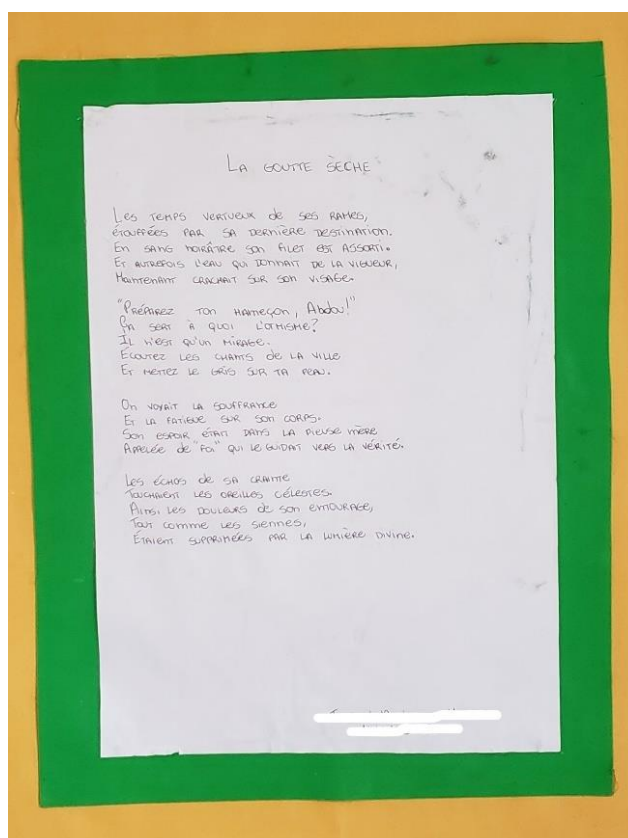 LA GOUTTE SÈCHE
Les temps vertueux de ses rames,
étouffées par sa dernière destination.
En sang noirâtre son filet est assorti.
Et autrefois l'eau qui donnait de la vigueur,
Maintenant crachait sur son visage.
"Préparez ton hameçon, Abdou!"
Ça sert à quoi
Il n'est qu'un mirage.
Écoutez les chants de la ville
Et mettez le gris sur ta peau.
On voyait la souffrance
Et la fatigue sur son corps.
Son espoir était dans la pieuse mère
Appelée de "foi" qui le guidait vers la vérité.
Les échos de sa crainte
Touchaient les oreilles célestes.
Ainsi les douleurs de son entourage,
Tout comme les siennes,
Étaient supprimées par la lumière divine.